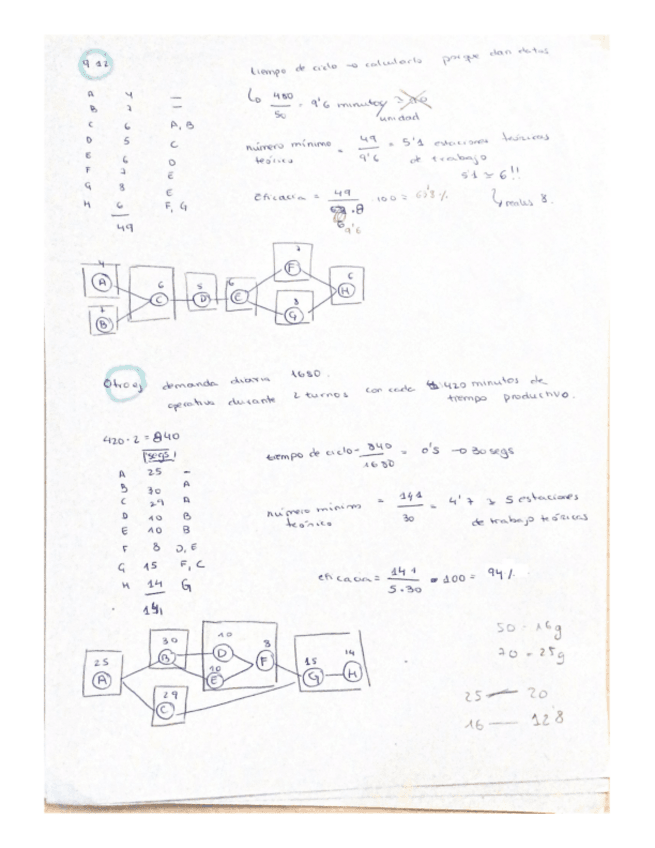 9 12
tiempo de ciclo → calcularlo porque dan datos
↳ 480/50 = 9'6 minutos/unidad
A 4 —
B 7 —
C 6 A, B
D 5 C
E 6 D
F 7 E
G 8 E
H 6 F, G
49
número mínimo teórico = 49/9'6 = 5'1 estaciones teóricas de trabajo
5'1 ≃ 6!!
↳ reales 8.
eficacia = 49/8 . 100 =
9'6
4 7 6 5 6 7 8 6
A B C D E F G H
Otro ej demanda diaria 1680.
operativa durante 2 turnos con cada 420 minutos de tiempo productivo.
420 · 2 = 840
segs
A 25 -
B 30 A
C 29 A
D 10 B
E 10 B
F 8 D, E
G 15 F, C
H 14 G
141
tiempo de ciclo = 840/1680 = 0'5 → 30 segs
número mínimo teórico = 141/30 = 4'7 ≥ 5 estaciones de trabajo teóricas
eficacia = 141/5·30 · 100 = 94%
25 30 29 10 10 8 15 14
A B C D E F G H
50 · 16g
20 = 25g
25 — 20
16 — 12'8